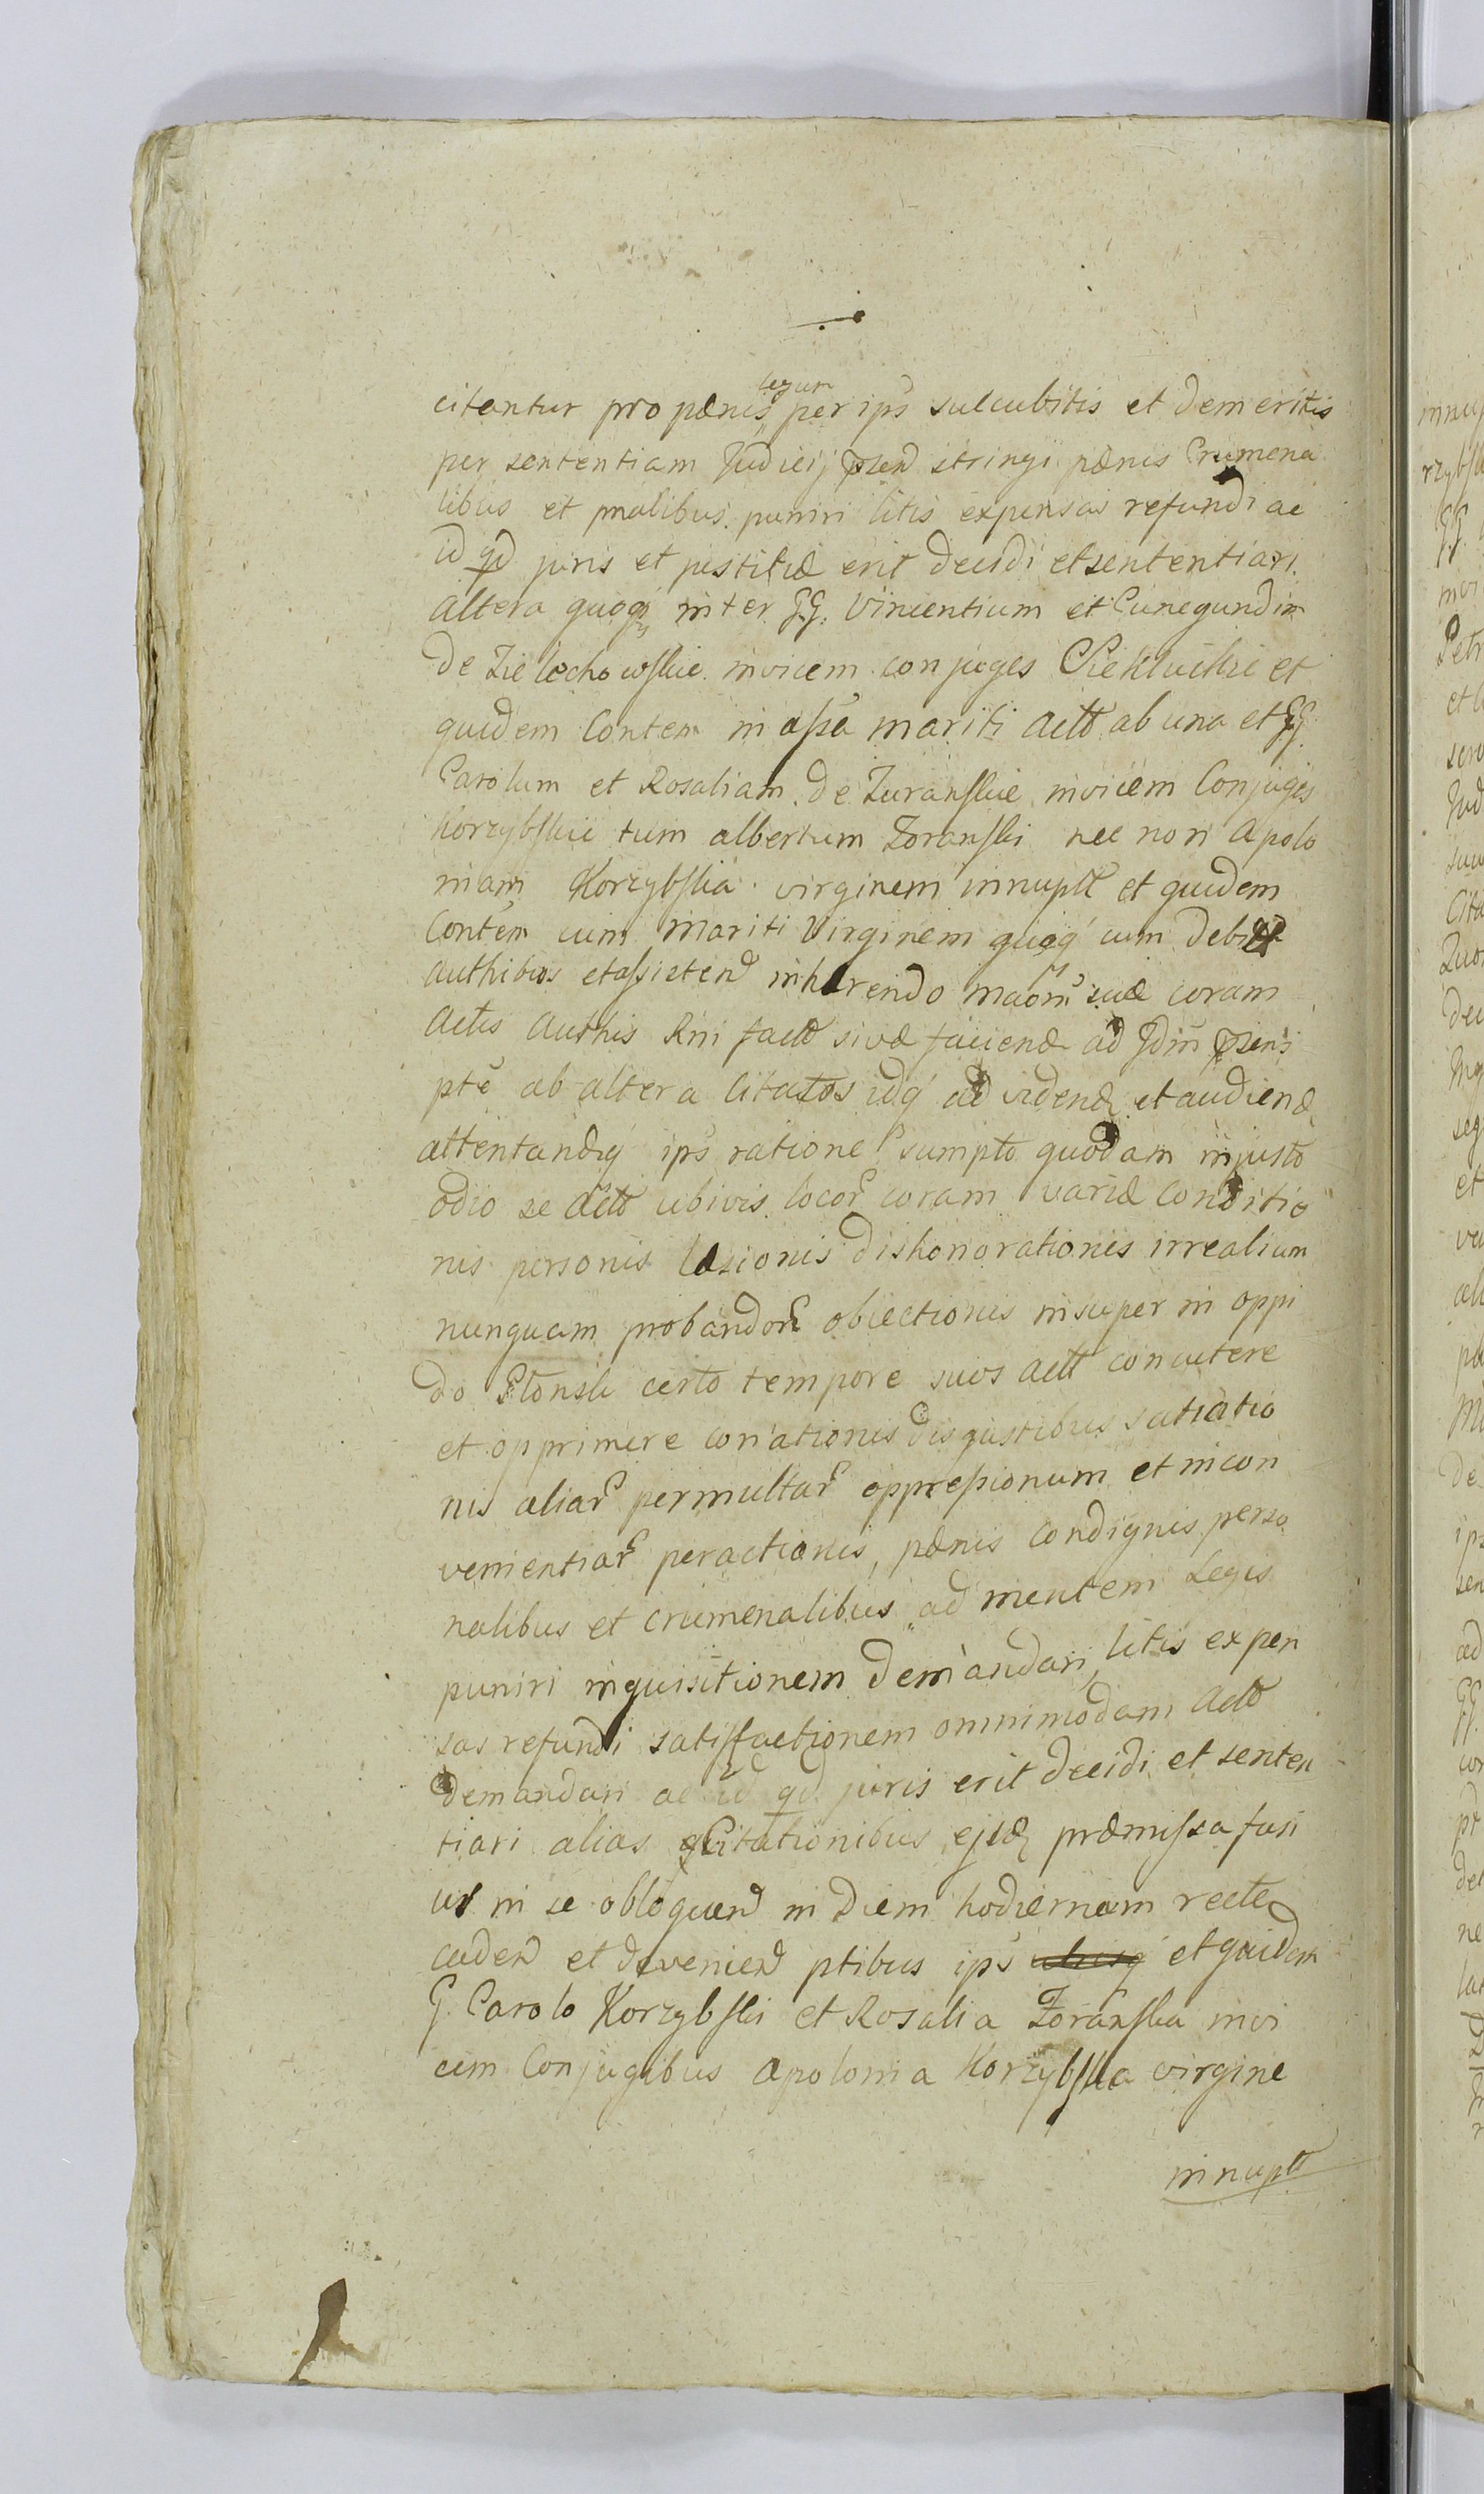 citantur pro pœnis legum per ips succubitis et demeritis
per sententiam Judicij psen stringi pœnis Crumena
libus et pnalibus puniri litis expensas refundi ac
id qd juris et justitiæ erit decidi et sententiari.
Altera quoq inter GG. Vincentium et Cunegundim
de Zielechowskie invicem conjuges Siekluckie et
quidem Conten in assa mariti Actt ab una et GG
Carolum et Rosaliam de Zuranskie invicem Conjuges
Korzybskie tum Albertum Zoranski nec non Apolo
niam Korzybska virginem innuptt et quidem
Contem cum mariti Virginem quoq cum debit
authibus et assisten inhærendo maom suæ coram
Actis Authis Rni fact sivæ faciend ad Jdm psens
pte ab altera Citatos idq ad vidend et audiend
attentandq ips ratione sumpto quodam injusto
odio se Actt ubivis locor coram variæ conditio
nis personis læsionis dishonorationis irrealium
nunquam probandor obiectionis insuper in oppi
do Płonsk certo tempore suos actt concutere
et opprimere conationis disgustibus satiatio
nis aliar permultar oppressionum et incon
venientiar peractionis, pœnis condignis perso
nalibus et crumenalibus ad mentem Legis
puniri inquisitionem demandari, litis expen
sas refundi satisfactionem omnimodam Actt
demandari ac id qd juris erit decidi et senten
tiari alias Citationibus ejsd præmissa fusi
us in se obloquen in Diem hodiernam recte
caden et devenien ptibus ips et quidem
G. Carolo Korzybski et Rosalia Zoranska invi
cem Conjugibus Apolonia Korzybska virgine
innuptt